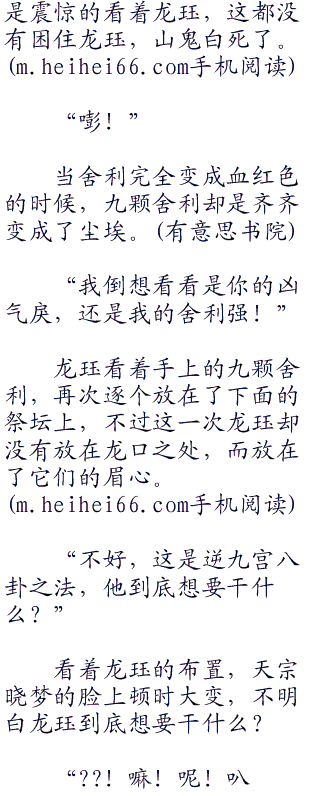 是震惊的看着龙珏，这都没
有困住龙珏，山鬼白死了。
(m.heihei66.com手机阅读)
“嘭！”
当舍利完全变成血红色
的时候，九颗舍利却是齐齐
变成了尘埃。(有意思书院)
“我倒想看看是你的凶
气戾，还是我的舍利强！”
龙珏看着手上的九颗舍
利，再次逐个放在了下面的
祭坛上，不过这一次龙珏却
没有放在龙口之处，而放在
了它们的眉心。
(m.heihei66.com手机阅读)
“不好，这是逆九宫八
卦之法，他到底想要干什
么？”
看着龙珏的布置，天宗
晓梦的脸上顿时大变，不明
白龙珏到底想要干什么？
“??！嘛！呢！叭